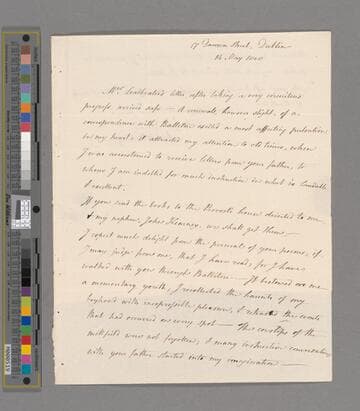 17 Dawson Street, Dublin
14 May 1840
Mrs Leadbeater's letter after taking a very circuitous
progress, arrived safe — A renewal, however slight, of a
correspondence with Ballitore excited a most affecting
in my heart & it attracted my attention to old times, when
I was accustomed to receive letters from your father, to
whom I am indebted for much instruction in what is laudable
& excellent.
If you send the books to the Provost's house directed to me
& my nephew, John Kearney, we shall get them, —
I expect much delight from the perusal of your poems, if
I may judge from one, that I have read, for I have
walked with you through Ballitore — It bestowed on me
a momentary youth, I recollected the haunts of my
boyhood with inexpressible pleasure, I retraced the events
that had occurred in every spot — The of the
millfield were not forgotten, & many instructive
with your father started into my imagination —